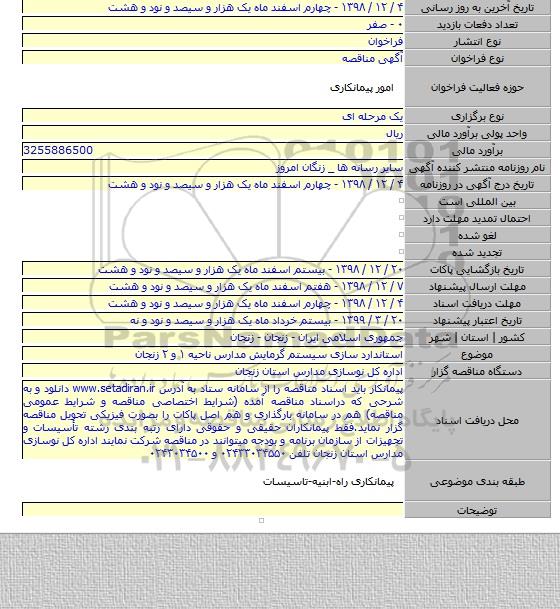 تاریخ آخرین به روز رسانی ۴ / ۱۲ / ۱۳۹۸ - چهارم اسفند ماه یک هزار و سیصد و نود و هشت
تعداد دفعات بازدید ۰ - صفر
نوع انتشار فراخوان
نوع فراخوان آگهی مناقصه
حوزه فعالیت فراخوان امور پیمانکاری
نوع برگزاری یک مرحله ای
واحد پولی برآورد مالی ریال
برآورد مالی 3255886500
نام روزنامه منتشر کننده آگهی سایر رسانه ها _ زنگان امروز
تاریخ درج آگهی در روزنامه ۴ / ۱۲ / ۱۳۹۸ - چهارم اسفند ماه یک هزار و سیصد و نود و هشت
بین المللی است
احتمال تمدید مهلت دارد
لغو شده
تجدید شده
تاریخ بازگشایی پاکات ۲۰ / ۱۲ / ۱۳۹۸ - بیستم اسفند ماه یک هزار و سیصد و نود و هشت
مهلت ارسال پیشنهاد ۷ / ۱۲ / ۱۳۹۸ - هفتم اسفند ماه یک هزار و سیصد و نود و هشت
مهلت دریافت اسناد ۴ / ۱۲ / ۱۳۹۸ - چهارم اسفند ماه یک هزار و سیصد و نود و هشت
تاریخ اعتبار پیشنهاد ۲۰ / ۳ / ۱۳۹۹ - بیستم خرداد ماه یک هزار و سیصد و نود و نه
کشور | استان | شهر جمهوری اسلامی ایران - زنجان - زنجان
موضوع استاندارد سازی سیستم گرمایش مدارس ناحیه ۱ و ۲ زنجان
دستگاه مناقصه گزار اداره کل نوسازی مدارس استان زنجان
محل دریافت اسناد
پیمانکار باید اسناد مناقصه را از سامانه ستاد به آدرس www.setadiran.ir دانلود و به
شرحی که دراسناد مناقصه آمده (شرایط اختصاصی مناقصه و شرایط عمومی
مناقصه) هم در سامانه بارگذاری و هم اصل پاکات را بصورت فیزیکی تحویل مناقصه
گزار نماید.فقط پیمانکاران حقیقی و حقوقی دارای رتبه بندی رشته تأسیسات و
تجهیزات از سازمان برنامه و بودجه میتوانند در مناقصه شرکت نمایند اداره کل نوسازی
مدارس استان زنجان تلفن ۰۲۴۳۳۰۳۴۵۵۰ و ۰۲۴۳۳۰۳۴۵۰۰
طبقه بندی موضوعی پیمانکاری راه-ابنیه-تاسیسات
توضیحات
ParsNamadData